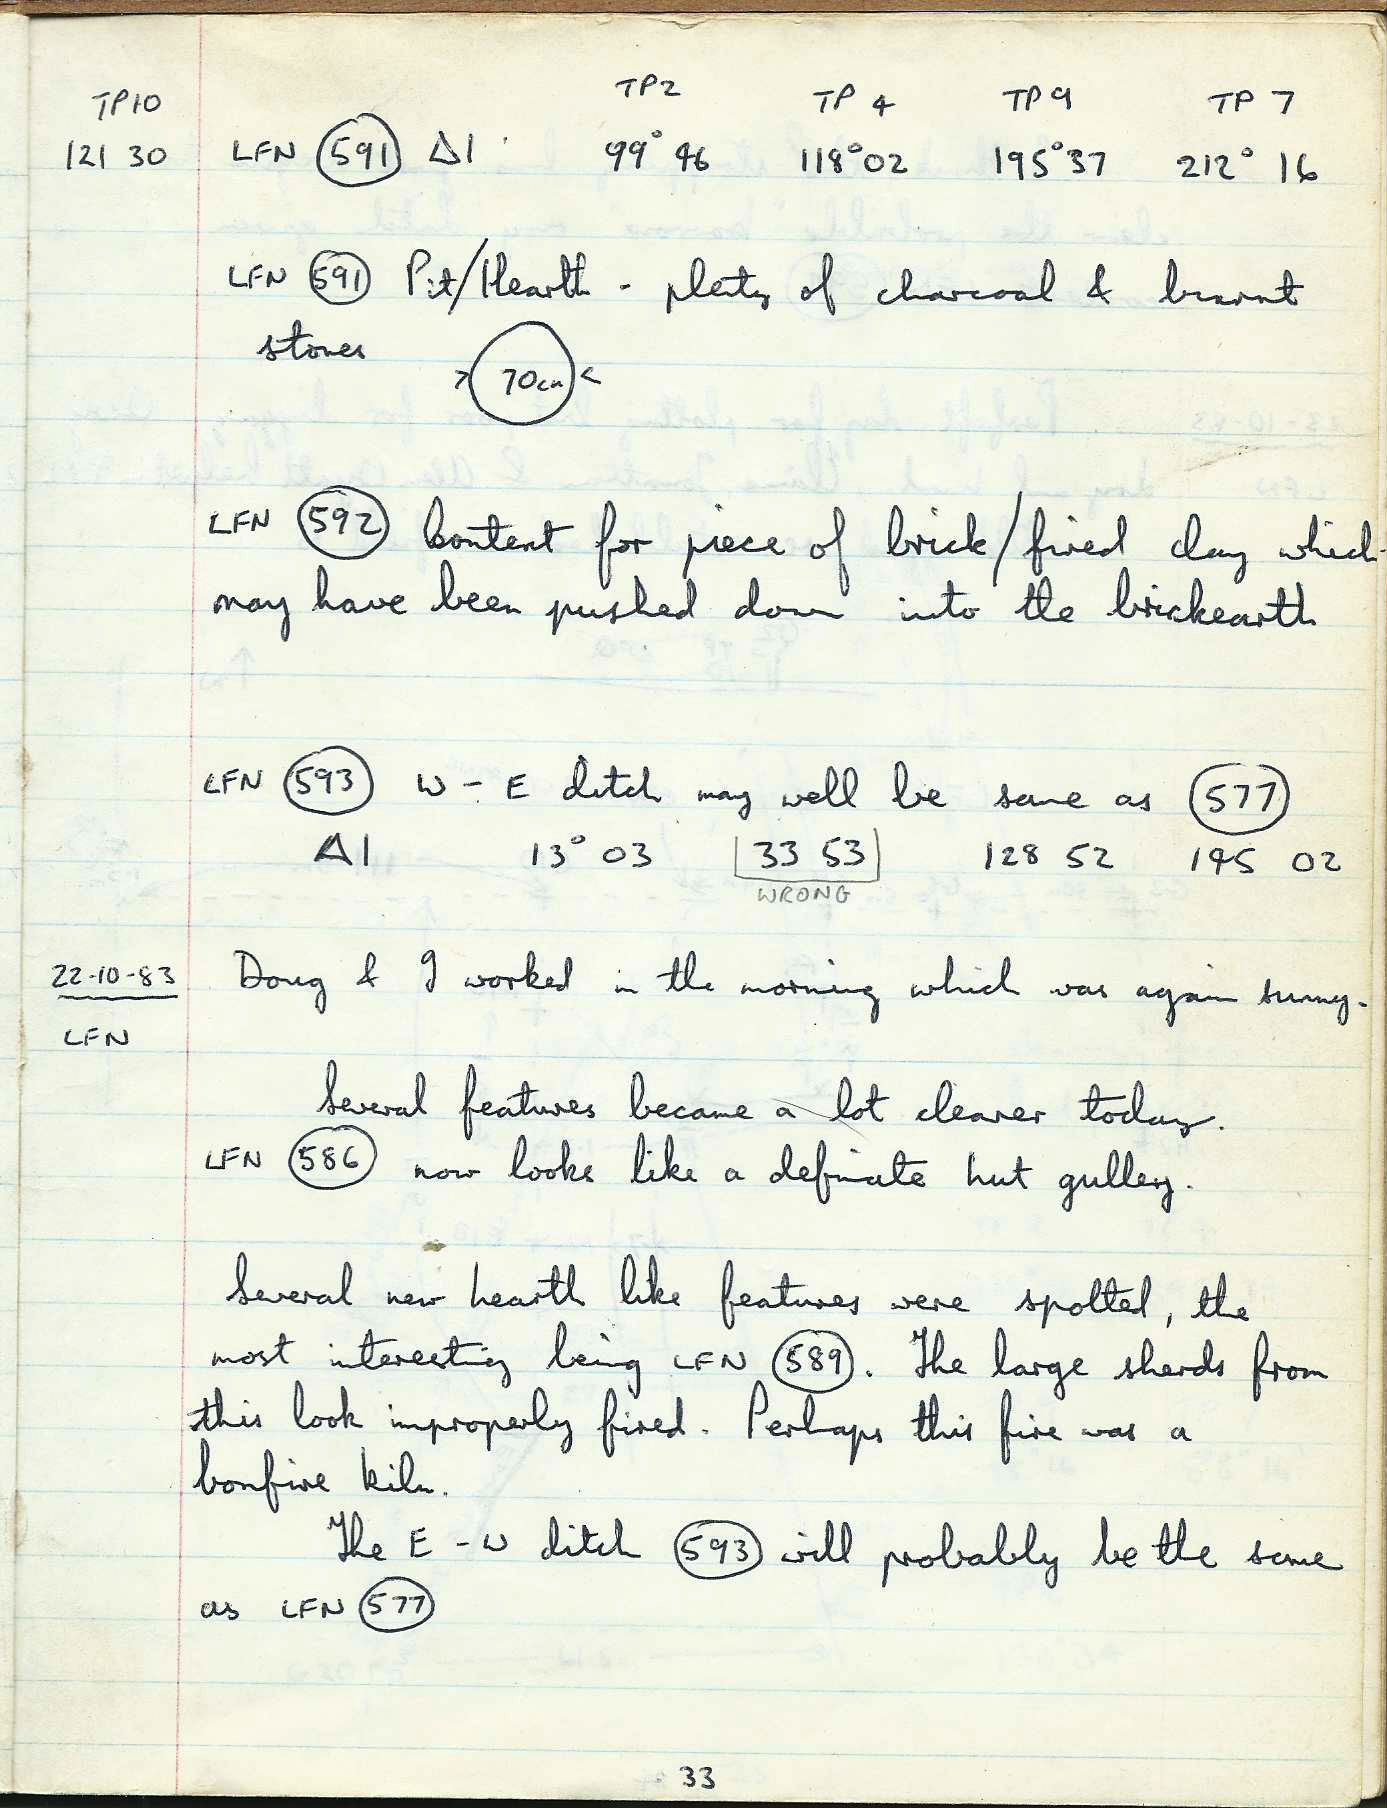 TP10 TP2 TP 4 TP 9 TP 7
121 30 LFN 591 Δ1 99° 46 118°02 195°37 212° 16
LFN 591 Pit/Hearth - plenty of charcoal & burnt
stones
> 70cm <
LFN 592 Context for piece of brick/fired clay which
may have been pushed down into the brickearth
LFN 593 W - E ditch may well be same as 577
Δ1 13° 03 33 53 128 52 195 02
WRONG
22-10-83 Doug & I worked in the morning which was again sunny.
LFN
Several features became a lot clearer today.
LFN 586 now looks like a definate hut gulley.
Several new hearth like features were spotted, the
most interesting being LFN 589. The large sherds from
this look improperly fired. Perhaps this fire was a
bonfire kiln.
The E - W ditch 593 will probably be the same
as LFN 577
33